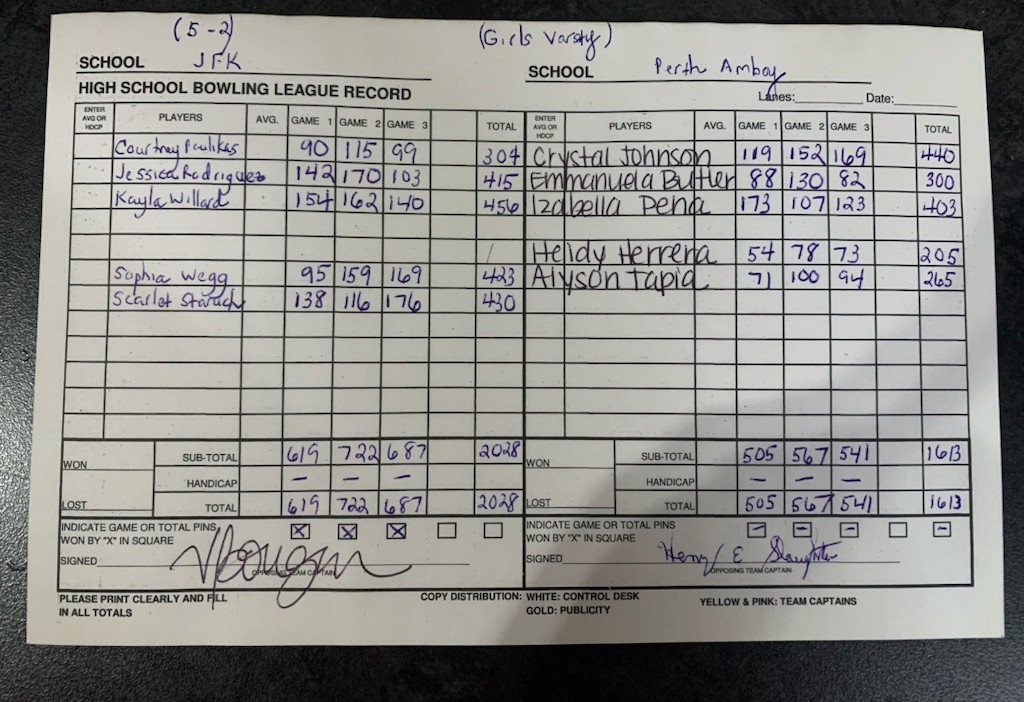 (5-2)
(Girls Varsity)
SCHOOL JFK
SCHOOL Perth Amboy
HIGH SCHOOL BOWLING LEAGUE RECORD
Lanes: Date:
ENTER AVG OR HDCP PLAYERS AVG. GAME 1 GAME 2 GAME 3 TOTAL ENTER AVG OR HDCP PLAYERS AVG. GAME 1 GAME 2 GAME 3 TOTAL
Courtney Paulikas 90 115 99 304 Crystal Johnson 119 152 169 440
Jessica Rodriguez 142 170 103 415 Emmanuela Butler 88 130 82 300
Kayla Willard 154 162 140 456 Izabella Pena 173 107 123 403
Heidy Herrera 54 78 73 205
Sophia Wegg 95 159 169 423 Alyson Tapia 71 100 94 265
Scarlet 138 116 176 430
WON SUB-TOTAL 619 722 687 2028 WON SUB-TOTAL 505 567 541 1613
HANDICAP – – – HANDICAP – – –
LOST TOTAL 619 722 687 2028 LOST TOTAL 505 567 541 1613
INDICATE GAME OR TOTAL PINS WON BY "X" IN SQUARE X X X INDICATE GAME OR TOTAL PINS WON BY "X" IN SQUARE – – – –
SIGNED SIGNED Henry E Slaughter
OPPOSING TEAM CAPTAIN OPPOSING TEAM CAPTAIN
PLEASE PRINT CLEARLY AND FILL IN ALL TOTALS
COPY DISTRIBUTION: WHITE: CONTROL DESK
GOLD: PUBLICITY
YELLOW & PINK: TEAM CAPTAINS